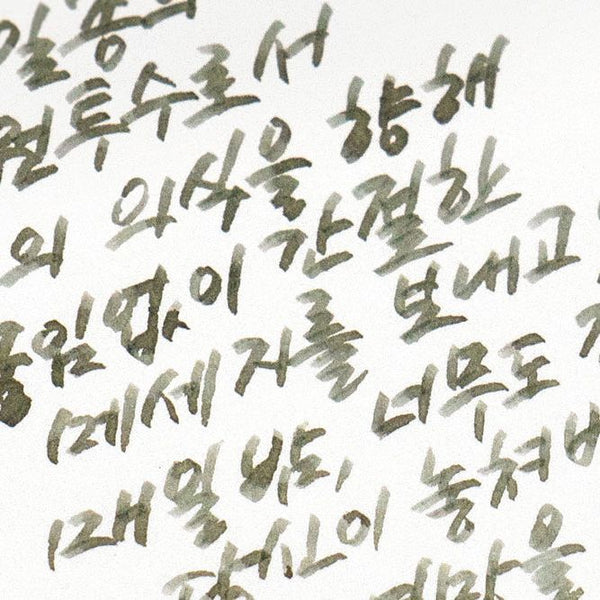 일종의
원투수로서
의 의식을 향해
임없이 간절한
메세지를 보내고
매일 밤, 너무도
당신이 놓쳐버